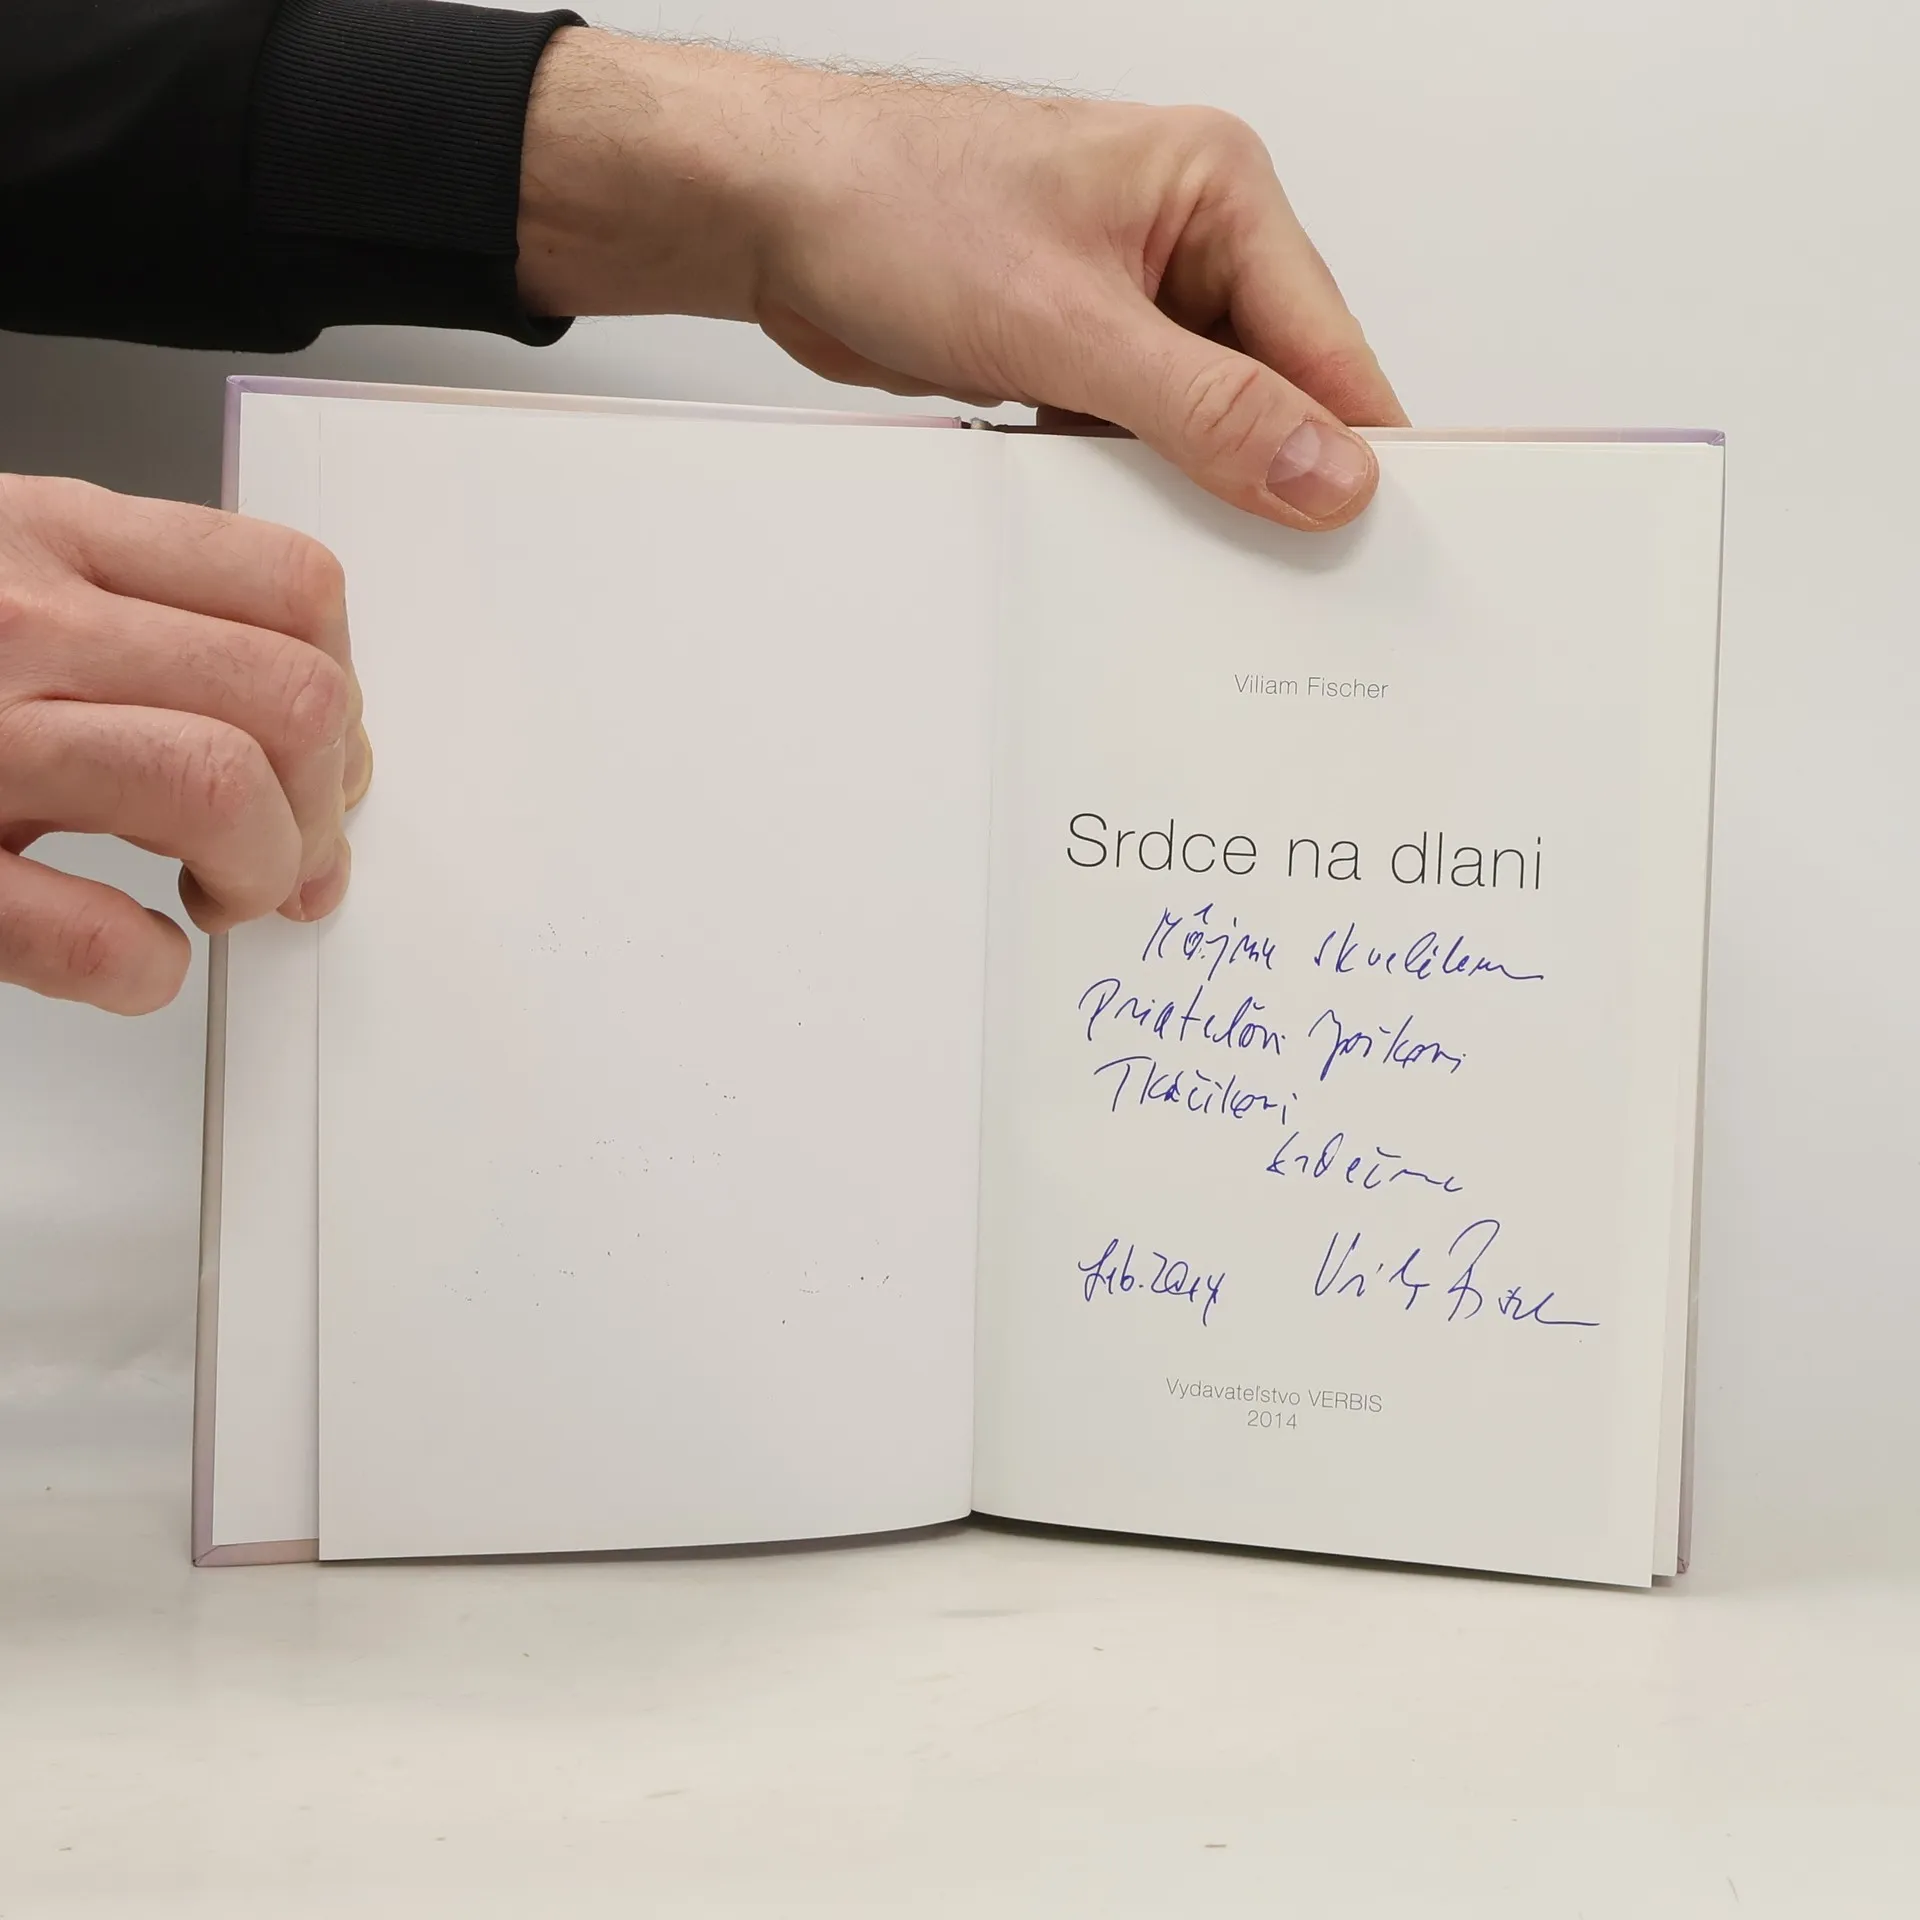 Viliam Fischer
Srdce na dlani
Môjmu skvelému
Priateľovi Joškovi
Tkáčikovi
srdečne
feb. 2014 Vili Fischer
Vydavateľstvo VERBIS
2014